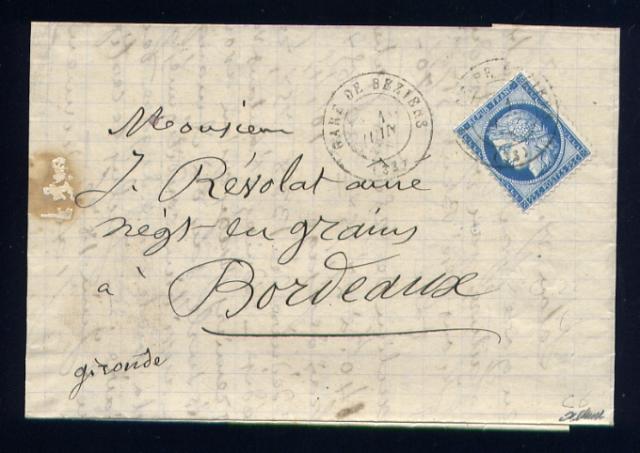 GARE DE BEZIERS
1
JUIN
(33)
Monsieur
J. Révolat aine
négt-en grains
à Bordeaux
gironde